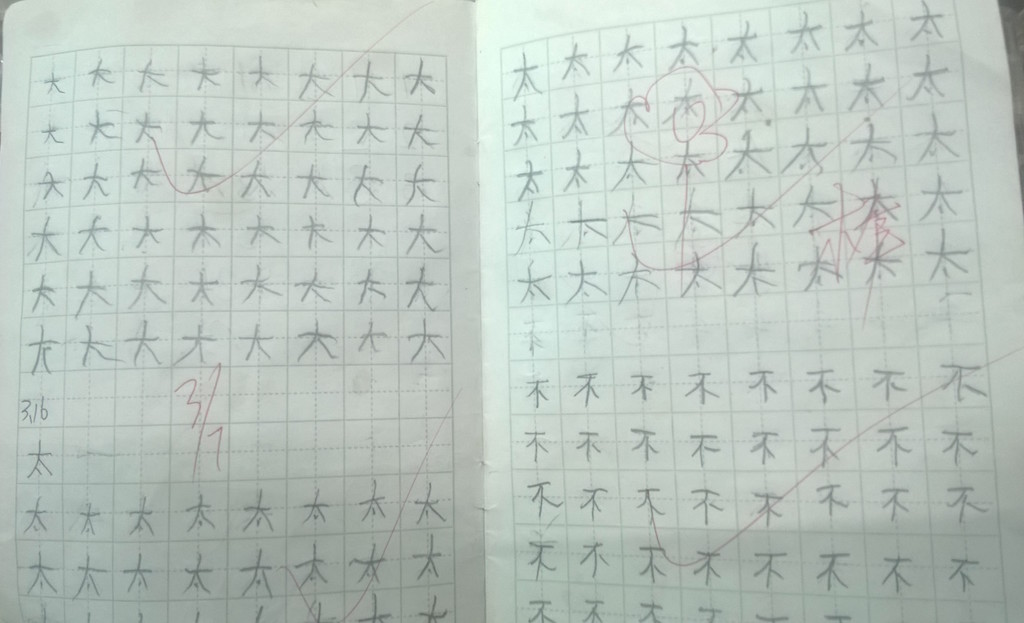 大大大大大大大大
大大大大大大大大
大大大大大大大大
大大大大大大大大
大大大大大大大大
大大大大大大大大
3.16
3/17
太
太太太太太太太太
太太太太太太太太
太太太太太太太太
太太太太太太太太
太太太太太太太太
太太太太太太太太
太太太太太太太太
不不不不不不不不
不不不不不不不不
不不不不不不不不
不不不不不不不不